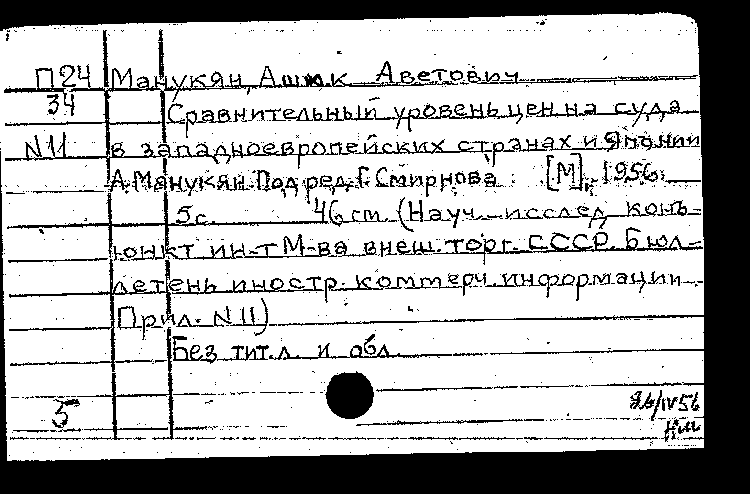 П24 Манукян, Ашок Аветович
34 Сравнительный уровень цен на суда
N11 в западноевропейских странах и Японии
А.Манукян. Под ред. Г. Смирнова [М], 1956.
5 с. 46 ст. (Науч.-исслед. конъ-
юнкт ин-т М-ва внеш. торг. СССР. Бюл-
летень иностр. коммерч. информации
Прил. N11)
Без тит.л. и обл.
5 26/IV56